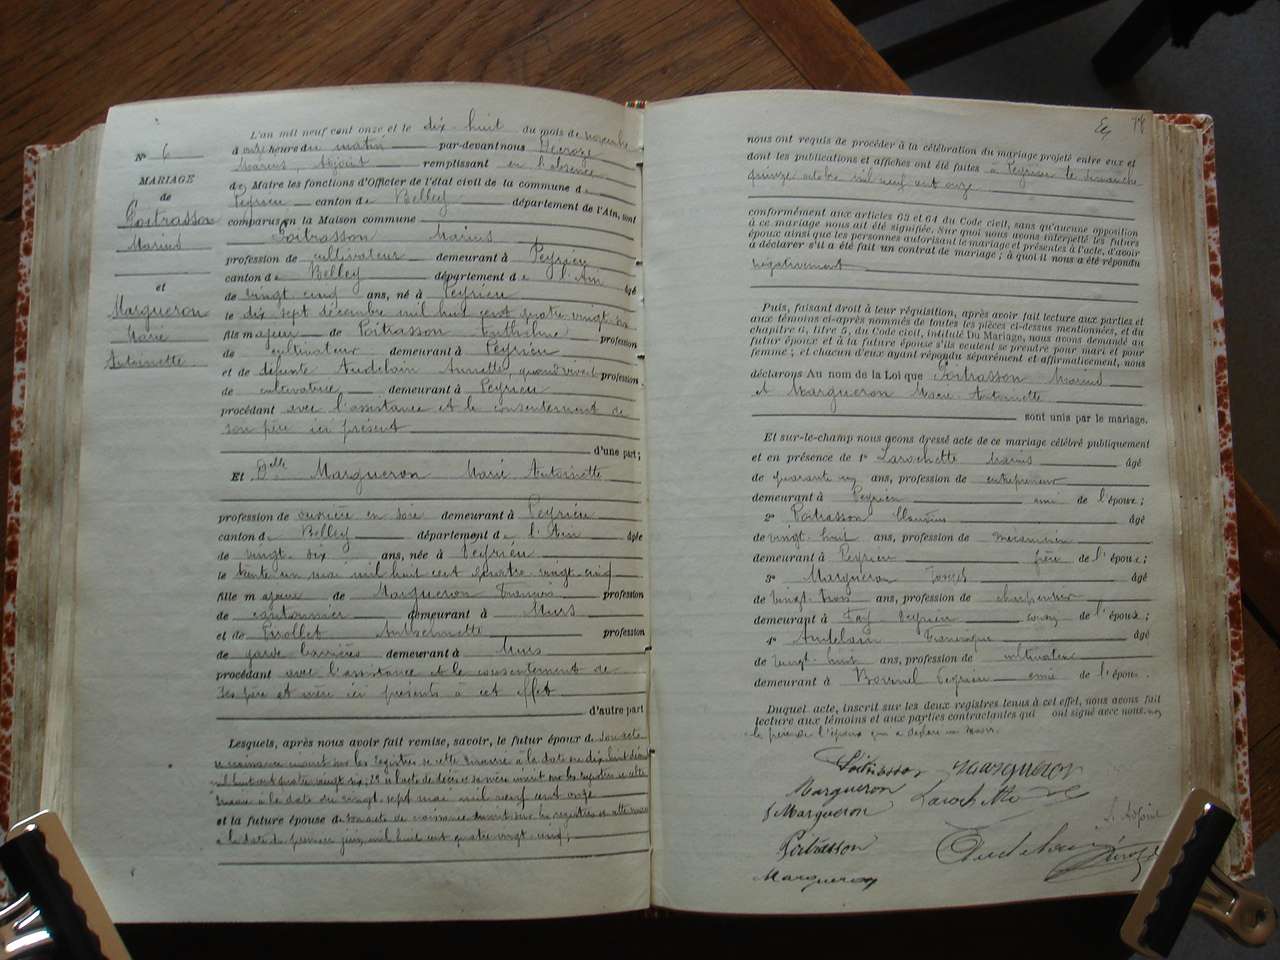 N° 6
MARIAGE
de
Poitrasson
Marius
et
Margueron
Marie
Antoinette
L'an mil neuf cent onze et le dix-huit du mois de novembre
à onze heure du matin par-devant nous Decroze
Marius, Adjoint remplissant en l'absence
du Maire les fonctions d'Officier de l'état civil de la commune de
Peyrieu canton de Belley département de l'Ain, sont
comparus en la Maison commune
Poitrasson Marius
profession de cultivateur demeurant à Peyrieu
canton de Belley département de l'Ain âgé
de vingt-cinq ans, né à Peyrieu
le dix sept décembre mil huit cent quatre vingt six
fils majeur de Poitrasson Anthelme profession
de cultivateur demeurant à Peyrieu
et de défunte Audelain Annette quand vivait profession
de cultivatrice demeurant à Peyrieu
procédant avec l'assistance et le consentement de
son père ici présent
d'une part;
Et Delle Margueron Marie Antoinette
profession de ouvrière en soie demeurant à Peyrieu
canton de Belley département de l'Ain âgée
de vingt-six ans, née à Peyrieu
le trente un mai mil huit cent quatre vingt cinq
fille majeure de Margueron François profession
de cantonnier demeurant à Murs
et de Pirollet Anthelmette profession
de garde barrières demeurant à Murs
procédant avec l'assistance et le consentement de
ses père et mère ici présents à cet effet
d'autre part
Lesquels, après nous avoir fait remise, savoir, le futur époux de son acte
de naissance inscrit sur les registres de cette commune à la date du dix huit décembre
mil huit cent quatre vingt six; 2° l'acte de décès de sa mère inscrit sur les registres de cette
commune à la date du vingt-sept mai mil neuf cent onze
et la future épouse de son acte de naissance inscrit sur les registres de cette mairie
à la date du premier juin mil huit cent quatre vingt cinq;
78
nous ont requis de procéder à la célébration du mariage projeté entre eux et
dont les publications et affiches ont été faites à Peyrieu le dimanche
quinze octobre mil neuf cent onze
conformément aux articles 63 et 64 du Code civil, sans qu'aucune opposition
à ce mariage nous ait été signifiée. Sur quoi nous avons interpellé les futurs
époux ainsi que les personnes autorisant le mariage et présentes à l'acte, d'avoir
à déclarer s'il a été fait un contrat de mariage; à quoi il nous a été répondu
négativement
Puis, faisant droit à leur réquisition, après avoir fait lecture aux parties et
aux témoins ci-après nommés de toutes les pièces ci-dessus mentionnées, et du
chapitre 6, titre 5, du Code civil, intitulé Du Mariage, nous avons demandé au
futur époux et à la future épouse s'ils veulent se prendre pour mari et pour
femme; et chacun d'eux ayant répondu séparément et affirmativement, nous
déclarons Au nom de la Loi que Poitrasson Marius
et Margueron Marie-Antoinette
sont unis par le mariage.
Et sur-le-champ nous avons dressé acte de ce mariage célébré publiquement
et en présence de 1° Larochette Marius âgé
de quarante ans, profession de entrepreneur
demeurant à Peyrieu ami de l'époux;
2° Poitrasson Claudius âgé
de vingt-huit ans, profession de mécanicien
demeurant à Peyrieu frère de l'époux;
3° Margueron Joseph âgé
de vingt-trois ans, profession de charpentier
demeurant à Peyrieu cousin de l'épouse;
4° Audelain âgé
de vingt-huit ans, profession de cultivateur
demeurant à Peyrieu ami de l'époux.
Duquel acte, inscrit sur les deux registres tenus à cet effet, nous avons fait
lecture aux témoins et aux parties contractantes qui ont signé avec nous, non
le père de l'époux qui a déclaré ne savoir.
Poitrasson Margueron
Margueron Larochette
Margueron
A. Adjoint
Poitrasson Audelain Decroze
Margueron